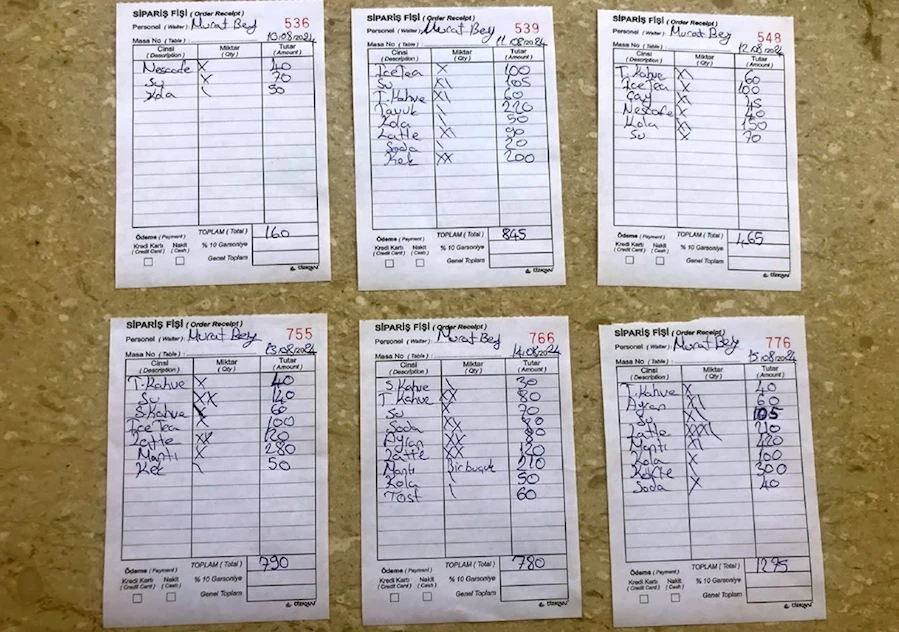 SİPARİŞ FİŞİ ( Order Receipt )
536
Personel ( Waiter ) : Murat Bey
10/08/2024
Masa No ( Table ) :
Cinsi Miktar Tutar
( Description ) ( Qty ) ( Amount )
Nescafe X 40
Su X 70
Kola \ 50
Ödeme ( Payment ) TOPLAM ( Total ) 160
Kredi Kartı Nakit % 10 Garsoniye
( Credit Card ) ( Cash )
Genel Toplam
SİPARİŞ FİŞİ ( Order Receipt )
539
Personel ( Waiter ) : Murat Bey
11/08/2024
Masa No ( Table ) :
Cinsi Miktar Tutar
( Description ) ( Qty ) ( Amount )
Ice Tea X 100
Su X\ 105
T.Kahve X\ 60
Tavuk \ 220
Kola \ 50
Latte X\ 90
Soda \ 20
Kek XX 200
Ödeme ( Payment ) TOPLAM ( Total ) 845
Kredi Kartı Nakit % 10 Garsoniye
( Credit Card ) ( Cash )
Genel Toplam
SİPARİŞ FİŞİ ( Order Receipt )
548
Personel ( Waiter ) : Murat Bey
12/08/2024
Masa No ( Table ) :
Cinsi Miktar Tutar
( Description ) ( Qty ) ( Amount )
T.Kahve X\ 60
Ice Tea X 100
Çay X\ 45
Nescafe X 40
Kola X\ 150
Su X 70
TOPLAM ( Total ) 465
Ödeme ( Payment )
Kredi Kartı Nakit % 10 Garsoniye
( Credit Card ) ( Cash )
Genel Toplam
SİPARİŞ FİŞİ ( Order Receipt )
755
Personel ( Waiter ) : Murat Bey
13/08/2024
Masa No ( Table ) :
Cinsi Miktar Tutar
( Description ) ( Qty ) ( Amount )
T.Kahve X 40
Su XX 140
S.Kahve X 60
Ice Tea X 100
Latte XX 120
Mantı X 280
Kek \ 50
Ödeme ( Payment ) TOPLAM ( Total ) 790
Kredi Kartı Nakit % 10 Garsoniye
( Credit Card ) ( Cash )
Genel Toplam
SİPARİŞ FİŞİ ( Order Receipt )
766
Personel ( Waiter ) : Murat Bey
14/08/2024
Masa No ( Table ) :
Cinsi Miktar Tutar
( Description ) ( Qty ) ( Amount )
S.Kahve \ 30
T.Kahve XX 80
Su X 70
Soda XX 80
Ayran XX 80
Latte XX 120
Mantı Bir buçuk 210
Kola \ 50
Tost \ 60
Ödeme ( Payment ) TOPLAM ( Total ) 780
Kredi Kartı Nakit % 10 Garsoniye
( Credit Card ) ( Cash )
Genel Toplam
SİPARİŞ FİŞİ ( Order Receipt )
776
Personel ( Waiter ) : Murat Bey
15/08/2024
Masa No ( Table ) :
Cinsi Miktar Tutar
( Description ) ( Qty ) ( Amount )
T.Kahve X 40
Ayran X\ 60
Su X\ 105
Latte XXX\ 210
Mantı X\ 420
Kola X 100
Köfte X 300
Soda X 40
Ödeme ( Payment ) TOPLAM ( Total ) 1275
Kredi Kartı Nakit % 10 Garsoniye
( Credit Card ) ( Cash )
Genel Toplam